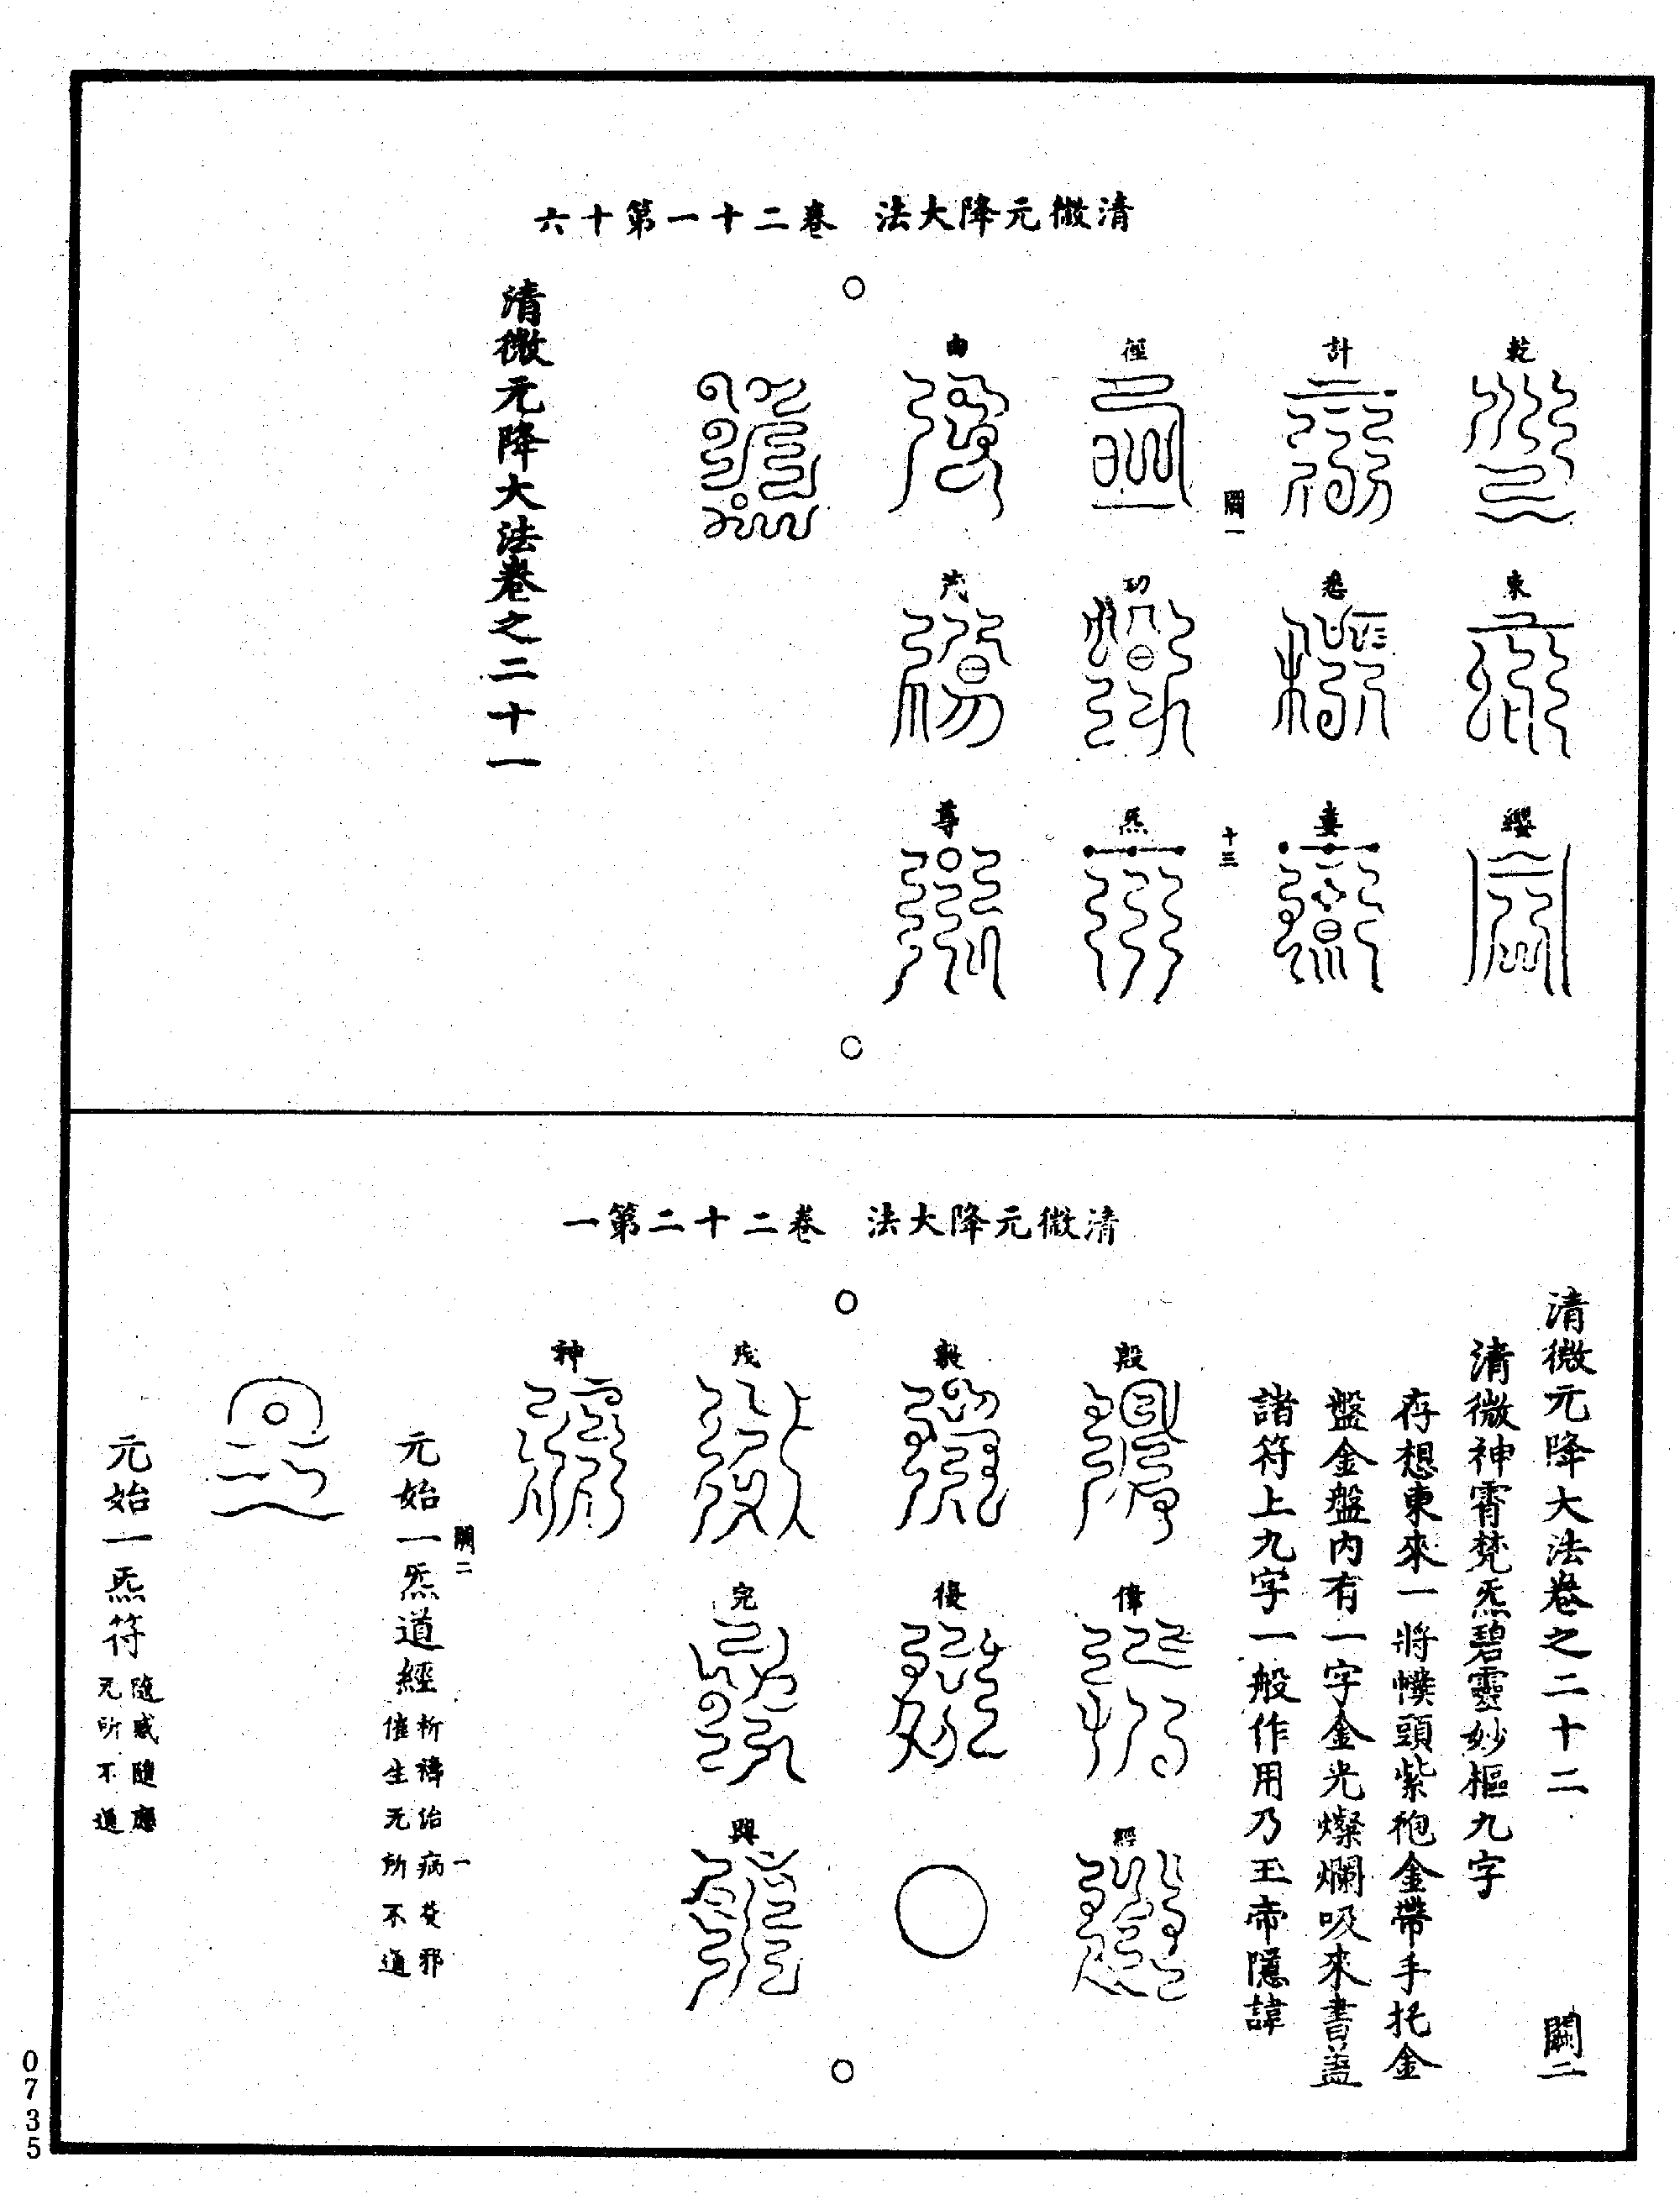 清微元降大法　卷二十一第十六
乾
東
纓
計
悉
婁
闕一
十三
徑
功
炁
由
汽
尊
清微元降大法卷之二十一
清微元降大法　卷二十二第一
清微元降大法卷之二十二
闕二
清微神霄梵炁碧靈妙樞九字
存想東來一將幞頭紫袍金帶手托金
盤金盤內有一字金光燦爛吸來書蓋
諸符上九字一般作用乃玉帝隱諱
殷
偉
經
毅
復
茂
完
興
神
闕二
一
元始一炁道經
祈禱治病茭邪
催生无所不通
元始一炁符
隨感隨應
无所不通
0735